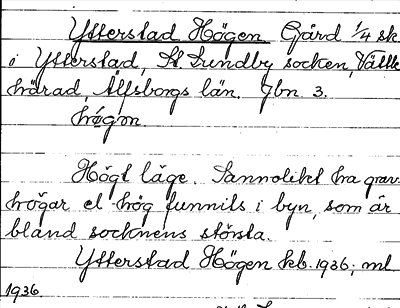 Ytterstad Högen Gård 1/4 sk
i Ytterstad, St. Lundby socken, Vättle
härad, Älfsborgs län. Jbn 3.
hǿgɔn.
Högt läge. Sannolikt ha grav-
högar el. hög funnits i byn, som är
bland socknens största.
Ytterstad Högen kb. 1936; ml.
1936